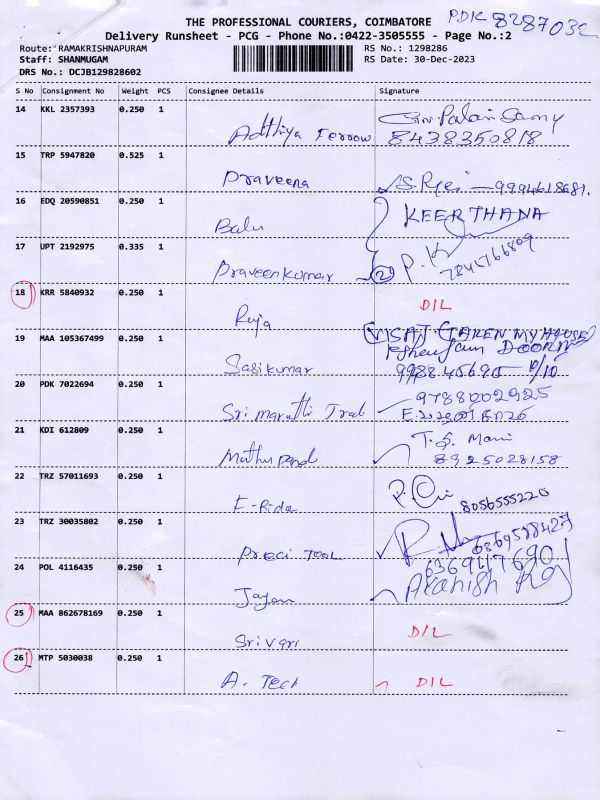 THE PROFESSIONAL COURIERS, COIMBATORE
PDK 8287032
Delivery Runsheet - PCG - Phone No.:0422-3505555 - Page No.:2
Route: RAMAKRISHNAPURAM RS No.: 1298286
Staff: SHANMUGAM RS Date: 30-Dec-2023
DRS No.: DCJB129828602
S No Consignment No Weight PCS Consignee Details Signature
14 KKL 2357393 0.250 1
Adthiya Ferrow 8438350818
15 TRP 5947820 0.525 1
Praveena 9994618681.
16 EDQ 20590851 0.250 1 KEERTHANA
Balu
17 UPT 2192975 0.335 1
Praveenkumar (2) 7845766809
18 KRR 5840932 0.250 1 DIL
Roja
19 MAA 105367499 0.250 1
DOOR
Sasikumar
20 PDK 7022694 0.250 1 9788002925
Sri maruthi Trad
21 KDI 612809 0.250 1 T.S. Mani
8925028158
22 TRZ 57011693 0.250 1
8056555220
E-Rida
23 TRZ 30035802 0.250 1
Preci Tool
24 POL 4116435 0.250 1
Jayam
25 MAA 862678169 0.250 1 DIL
Srivari
26 MTP 5030038 0.250 1
A. Tech DIL